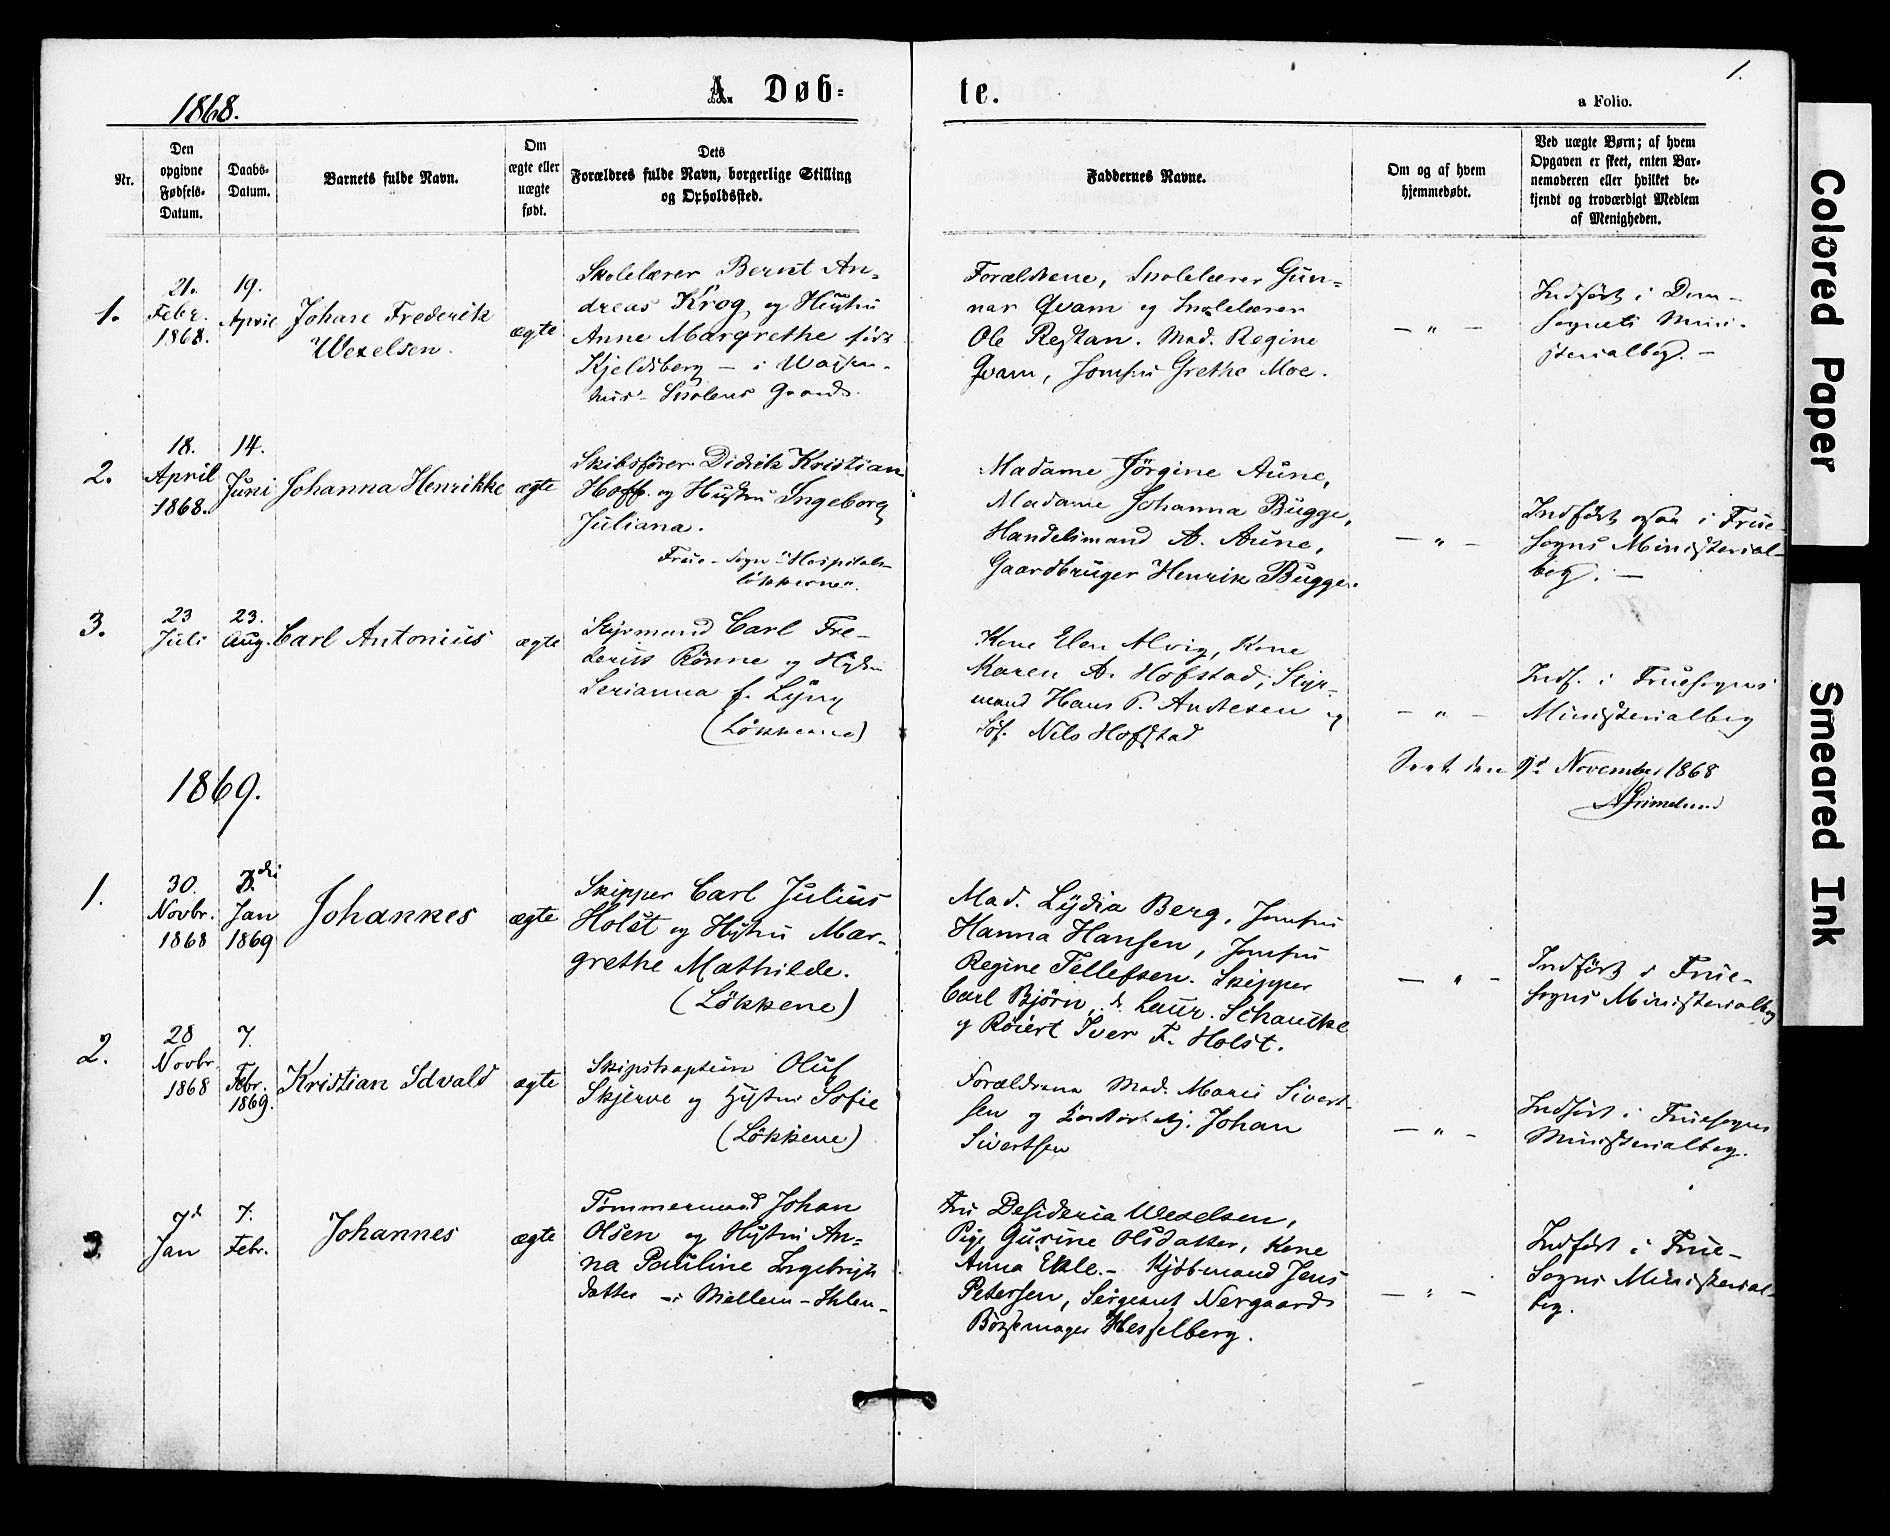 1.
A. Døb= te.
1868.
a Folio.
Nr.
Den
opgivne
Fødsels-
Datum.
Daabs-
Datum.
Barnets fulde Navn.
Om
ægte eller
uægte
født.
Dets
Forældres fulde Navn, borgerlige Stilling
og Opholdssted.
Faddernes Navne.
Om og af hvem
hjemmedøbt.
Ved uægte Børn; af hvem
Opgaven er skeet, enten Bar-
nemoderen eller hvilket be-
kjendt og troværdigt Medlem
af Menigheden.
1.
21.
Febr.
1868.
19.
April
Johan Frederik
Wexelsen.
ægte
Skolelærer Bernt An-
dreas Krog og Hustru
Anne Margrethe født
Kjeldsberg – i Waisen-
hus-Skolens Gaard.
Forældrene, Skolelærer Gun-
nar Qvam og Skolelærer
Ole Restan. Mad. Regine
Qvam, Jomfru Grethe Moe.
— " —
Indført i Dom-
sognets Mini-
sterialbog. –
2.
18.
April
1868.
14.
Juni
Johanna Henrikke
ægte
Skibsfører Didrik Kristian
Hoff og Hustru Ingeborg
Juliana.
Frue-Sogn "Hospitals-
løkkerne".
Madame Jørgine Aune,
Madame Johanna Bugge,
Handelsmand A. Aune,
Gaardbruger Henrik Bugge.
— " —
Indført ogsaa i Frue-
Sogns Ministerial-
bog. —
3.
23
Juli
23.
Aug.
Carl Antonius
ægte
Styrmand Carl Fre-
derik Rønne og Hustru
Serianna f. Lyng
(Løkkerne)
Kone Elen Alvig, Kone
Maren A. Hofstad, Styr-
mand Hans P. Andresen og
Nils Hofstad
— " —
Indf. i Fruesogns
Ministerialbog
Seet den November 1868
AGrimelund
1869.
1.
30.
Novbr.
1868
3die
Jan
1869
Johannes
ægte
Skipper Carl Julius
Holst og Hustru Mar-
grethe Mathilde.
(Løkkene)
Mad. Lydia Berg, Jomfru
Hanna Hansen, Jomfru
Regine Tellefsen. Skipper
Carl Bjørn, d. Laur. Schanke
og Røiert Iver F. Holst.
— " —
Indført i Frue-
sogns Ministerialbog
2.
28
Novbr.
1868
7.
Febr.
1869.
Kristian Edvald
ægte
Skipskaptein Oluf
Skjerve og Hustru Sofie
(Løkkene)
Forældrene Mad. Marie Sivert-
sen og Johan
Sivertsen
— " —
Indført i Fruesogns
Ministerialbog.
3
7d
Jan
7.
Febr.
Johannes
ægte
Tømmermand Johan
Olsen og Hustru An-
na Pauline Ingebrigts
datter – i Mellem-Ihlen–
Fru Desideria Wexelsen,
Pige Gurine Olsdatter, Kone
Anna Ekle. – Kjøbmand Jens
Petersen, Sergeant Nergaard
Bøssemager Hesselberg.
— " —
Indført i Frue-
Sogns Ministerial-
bog.
Colored Paper
Smeared Ink